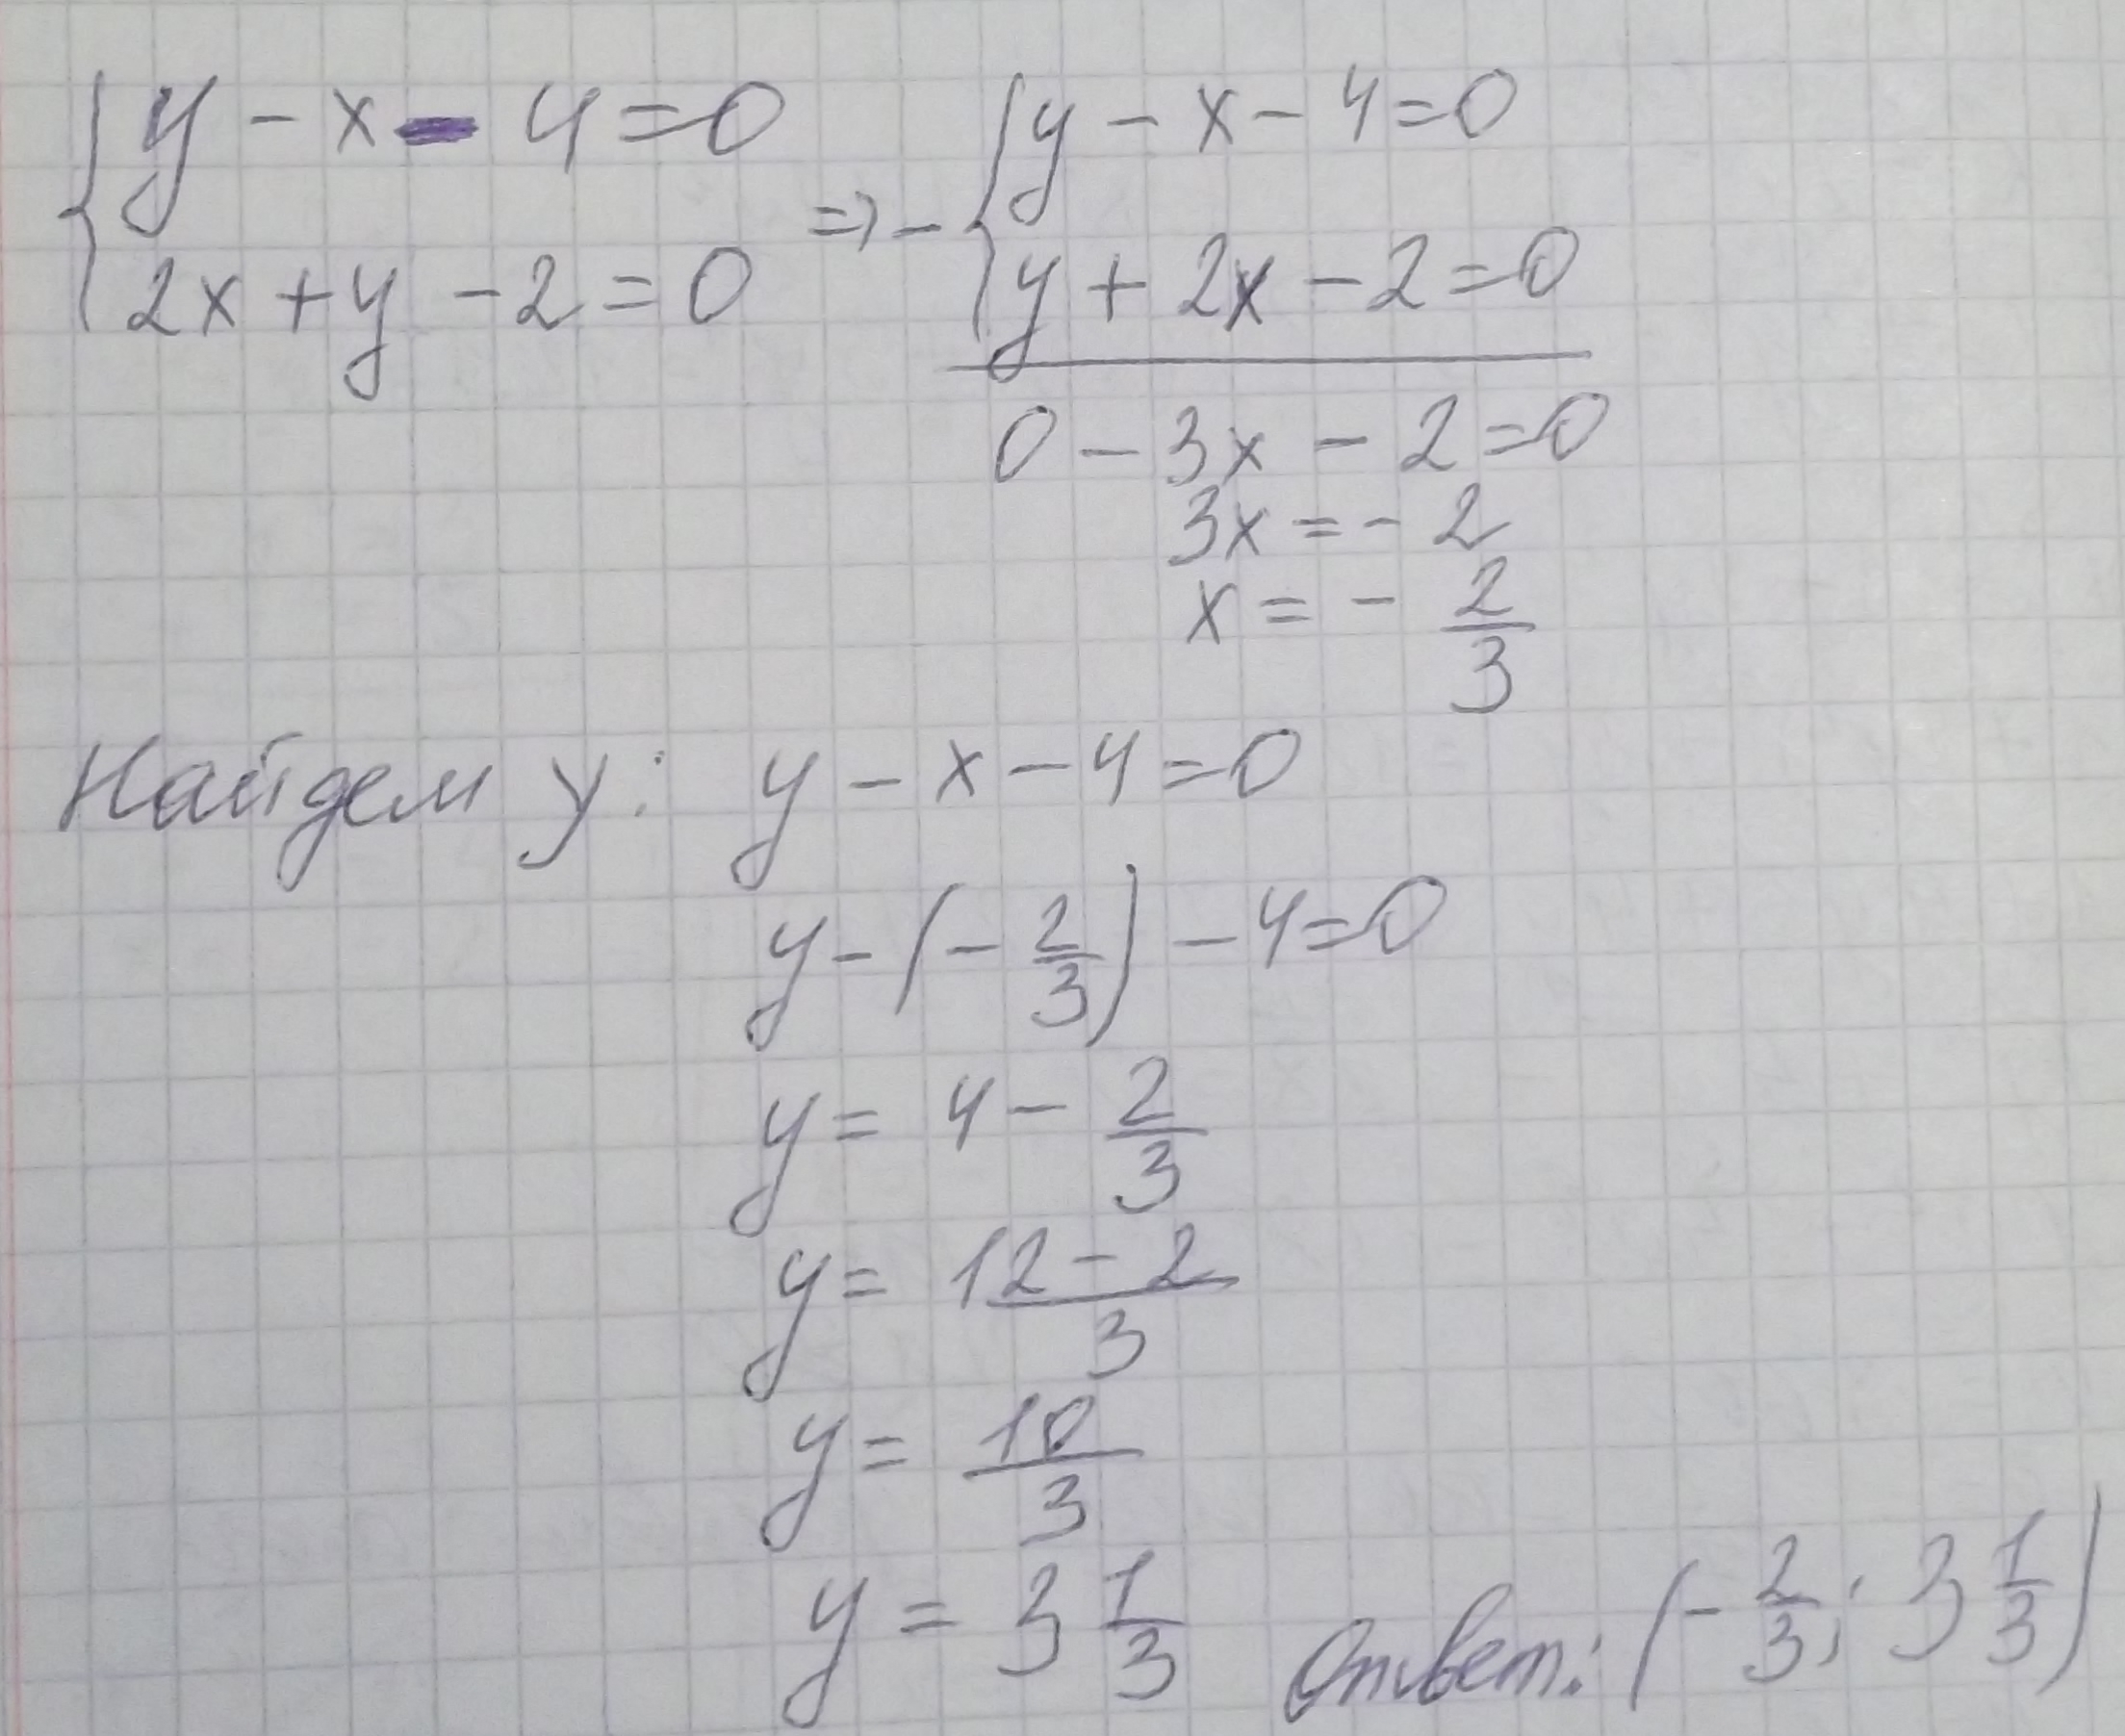 { y - x - 4 = 0
2x + y - 2 = 0
=> - { y - x - 4 = 0
y + 2x - 2 = 0
0 - 3x - 2 = 0
3x = - 2
x = - 2/3
Найдем у: y - x - 4 = 0
y - (- 2/3) - 4 = 0
y = 4 - 2/3
y = 12 - 2 / 3
y = 10/3
y = 3 1/3
Ответ: (- 2/3; 3 1/3)